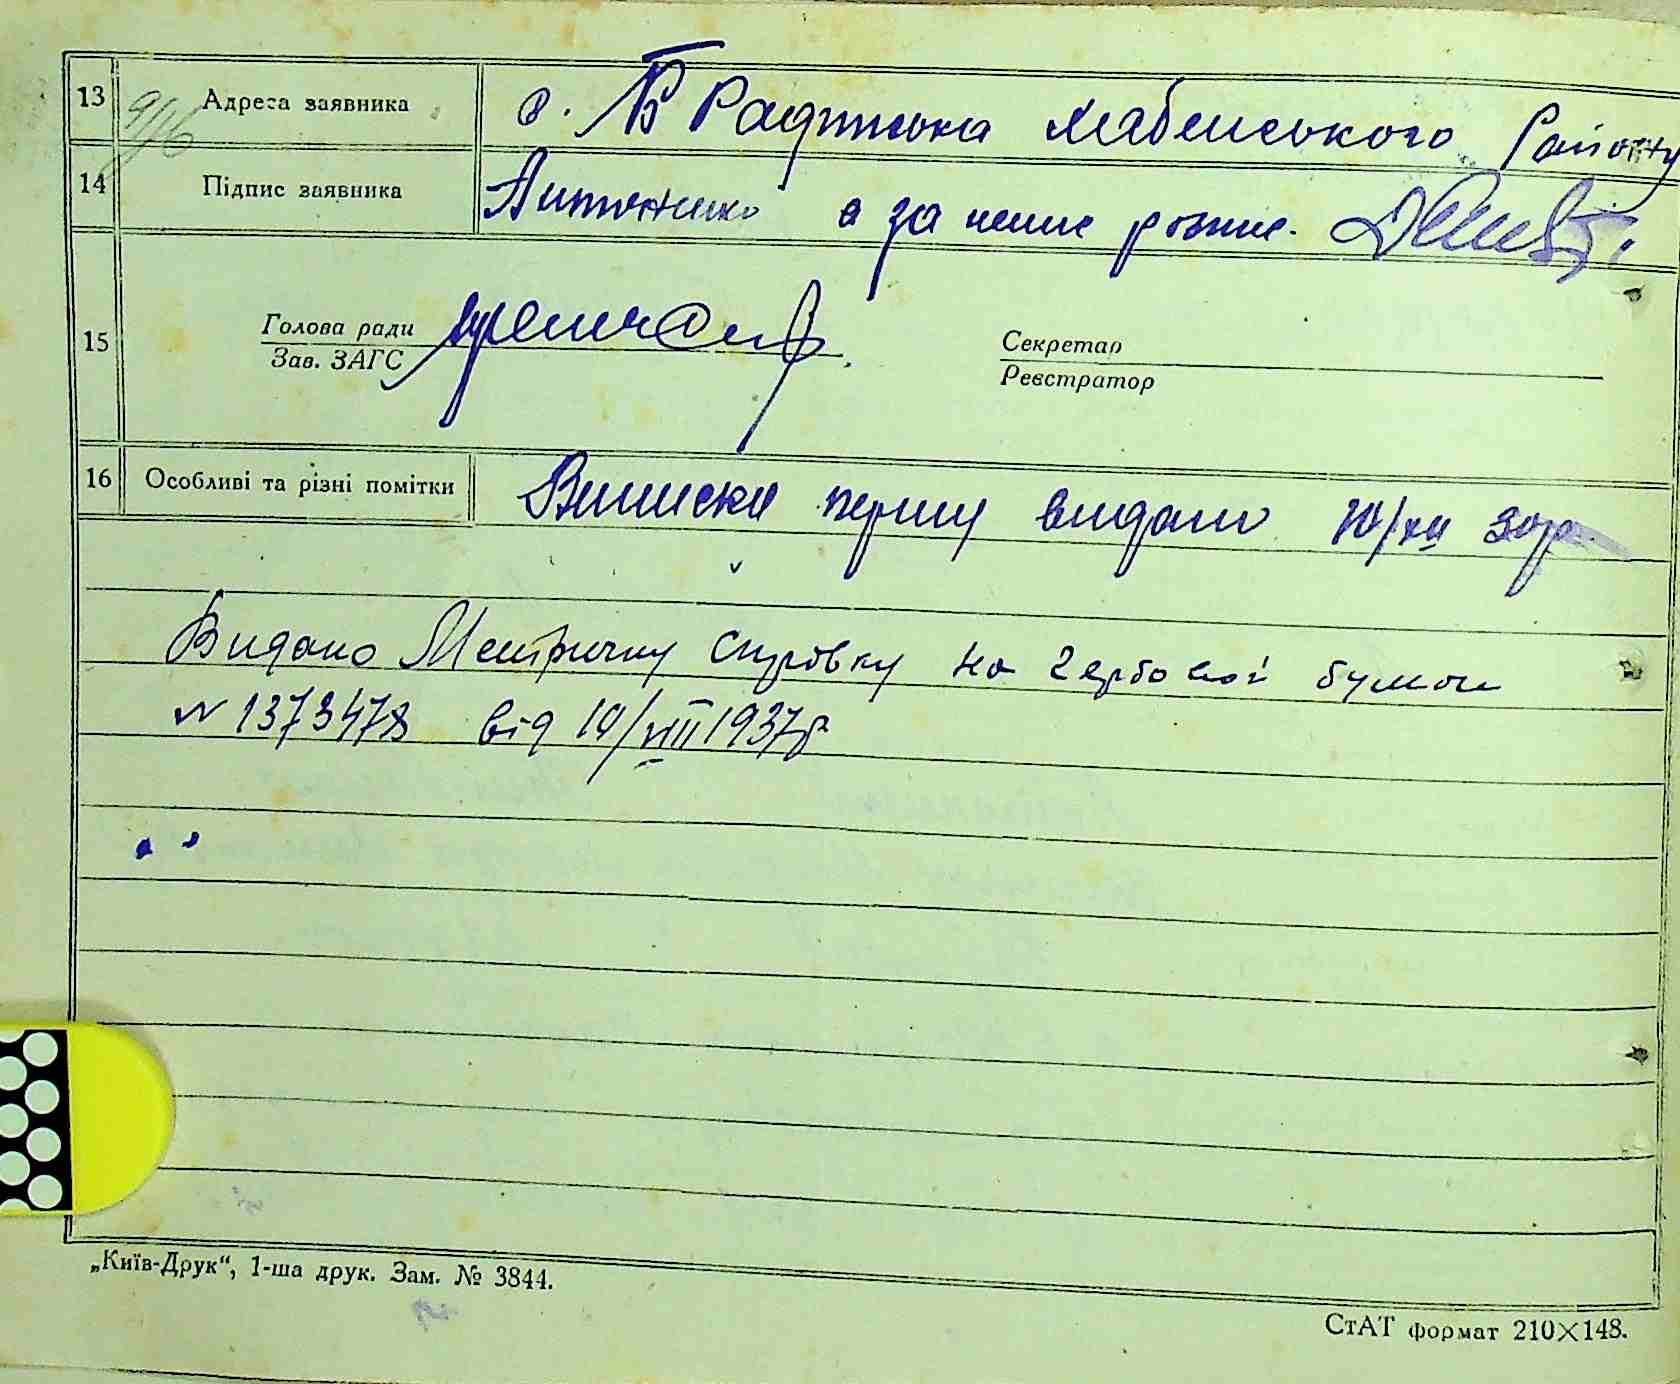 13 Адреса заявника с. В Радитська Хабенського Району
14 Підпис заявника Антоненко а за неї розпис.
15 Голова ради
Зав. ЗАГС
Секретар
Реєстратор
16 Особливі та різні помітки Виписки першу видано 10/XII 30р
Видано Метричну Справку на гербовой бумаги
N 1373478 від 10/VIII 1937р
„Київ-Друк“, 1-ша друк. Зам. № 3844.
СтАТ формат 210×148.